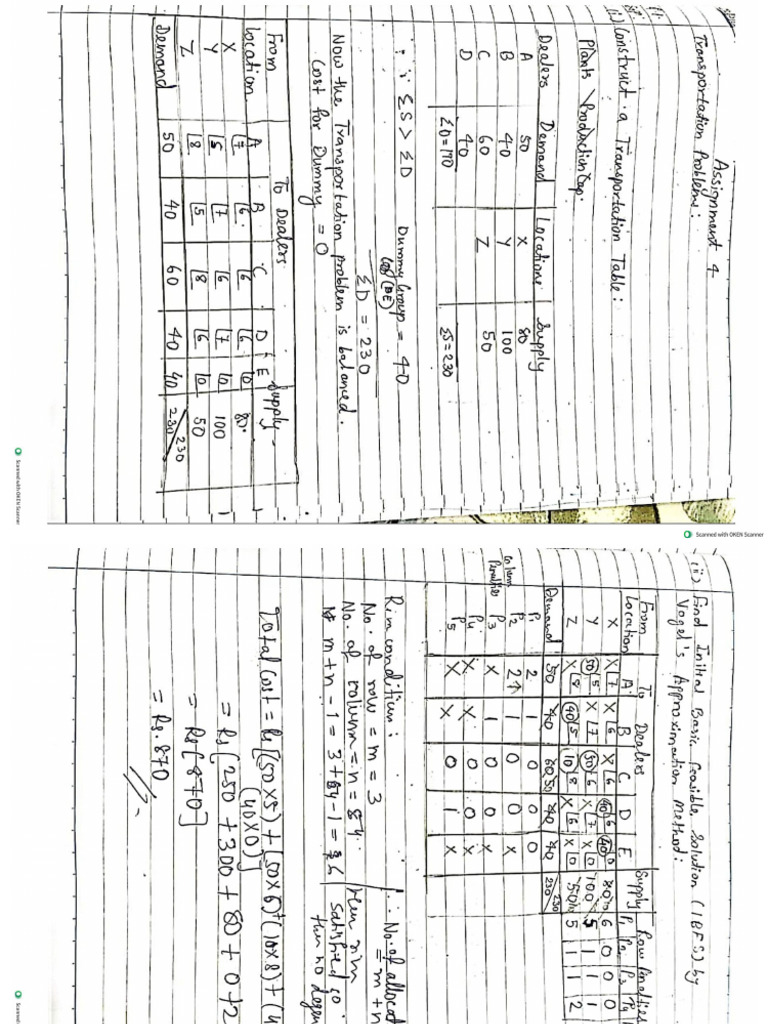 Assignment 4
Transportation Problem:
(i) Construct a Transportation Table:
Plants Production Cap.
Dealers Demand Locations Supply
A 50 X 80
B 40 Y 100
C 60 Z 50
D 40
ΣD=190 ΣS=230
∵ ΣS > ΣD Dummy Group = 40
ΣD = 230
Now the Transportation problem is balanced.
Cost for Dummy = 0
From To Dealers Supply
Location A B C D E
X 7 6 6 6 0 80
Y 5 7 6 7 0 100
Z 8 5 8 6 0 50
Demand 50 40 60 40 40 230 230
Scanned with OKEN Scanner
Scanned with OKEN Scanner
ii) Find Initial Basic Feasible Solution (IBFS) by
Vogel's Approximation Method:
From To Dealers Supply Row Penalties
Location A B C D E P1 P2 P3 P4
X X 7 X 6 X 6 40 6 40 0 80 6 0 0 0
Y 50 5 X 7 50 6 X 7 X 0 100 5 1 1 1
Z X 8 40 5 10 8 X 6 X 0 50 5 1 1 2
Demand 50 40 60 50 40 40 230 230
Column Penalties
P1 2 1 0 0 0
P2 2↑ 1 0 0 X
P3 X 1 0 0 X
P4 X X 0 0 X
P5 X X 0 1 X
Rim condition:
No. of row = m = 3
No. of column = n =
m + n - 1 = 3 +
∴ No. of allocat
= m + n
satisfied so
then no degen
Total cost = Rs [(50×5) + (50×6) + (10×8) + (4
(40×0)]
= Rs [250 + 300 + 80 + 0 + 2
= Rs [870]
= Rs. 870
Scanned